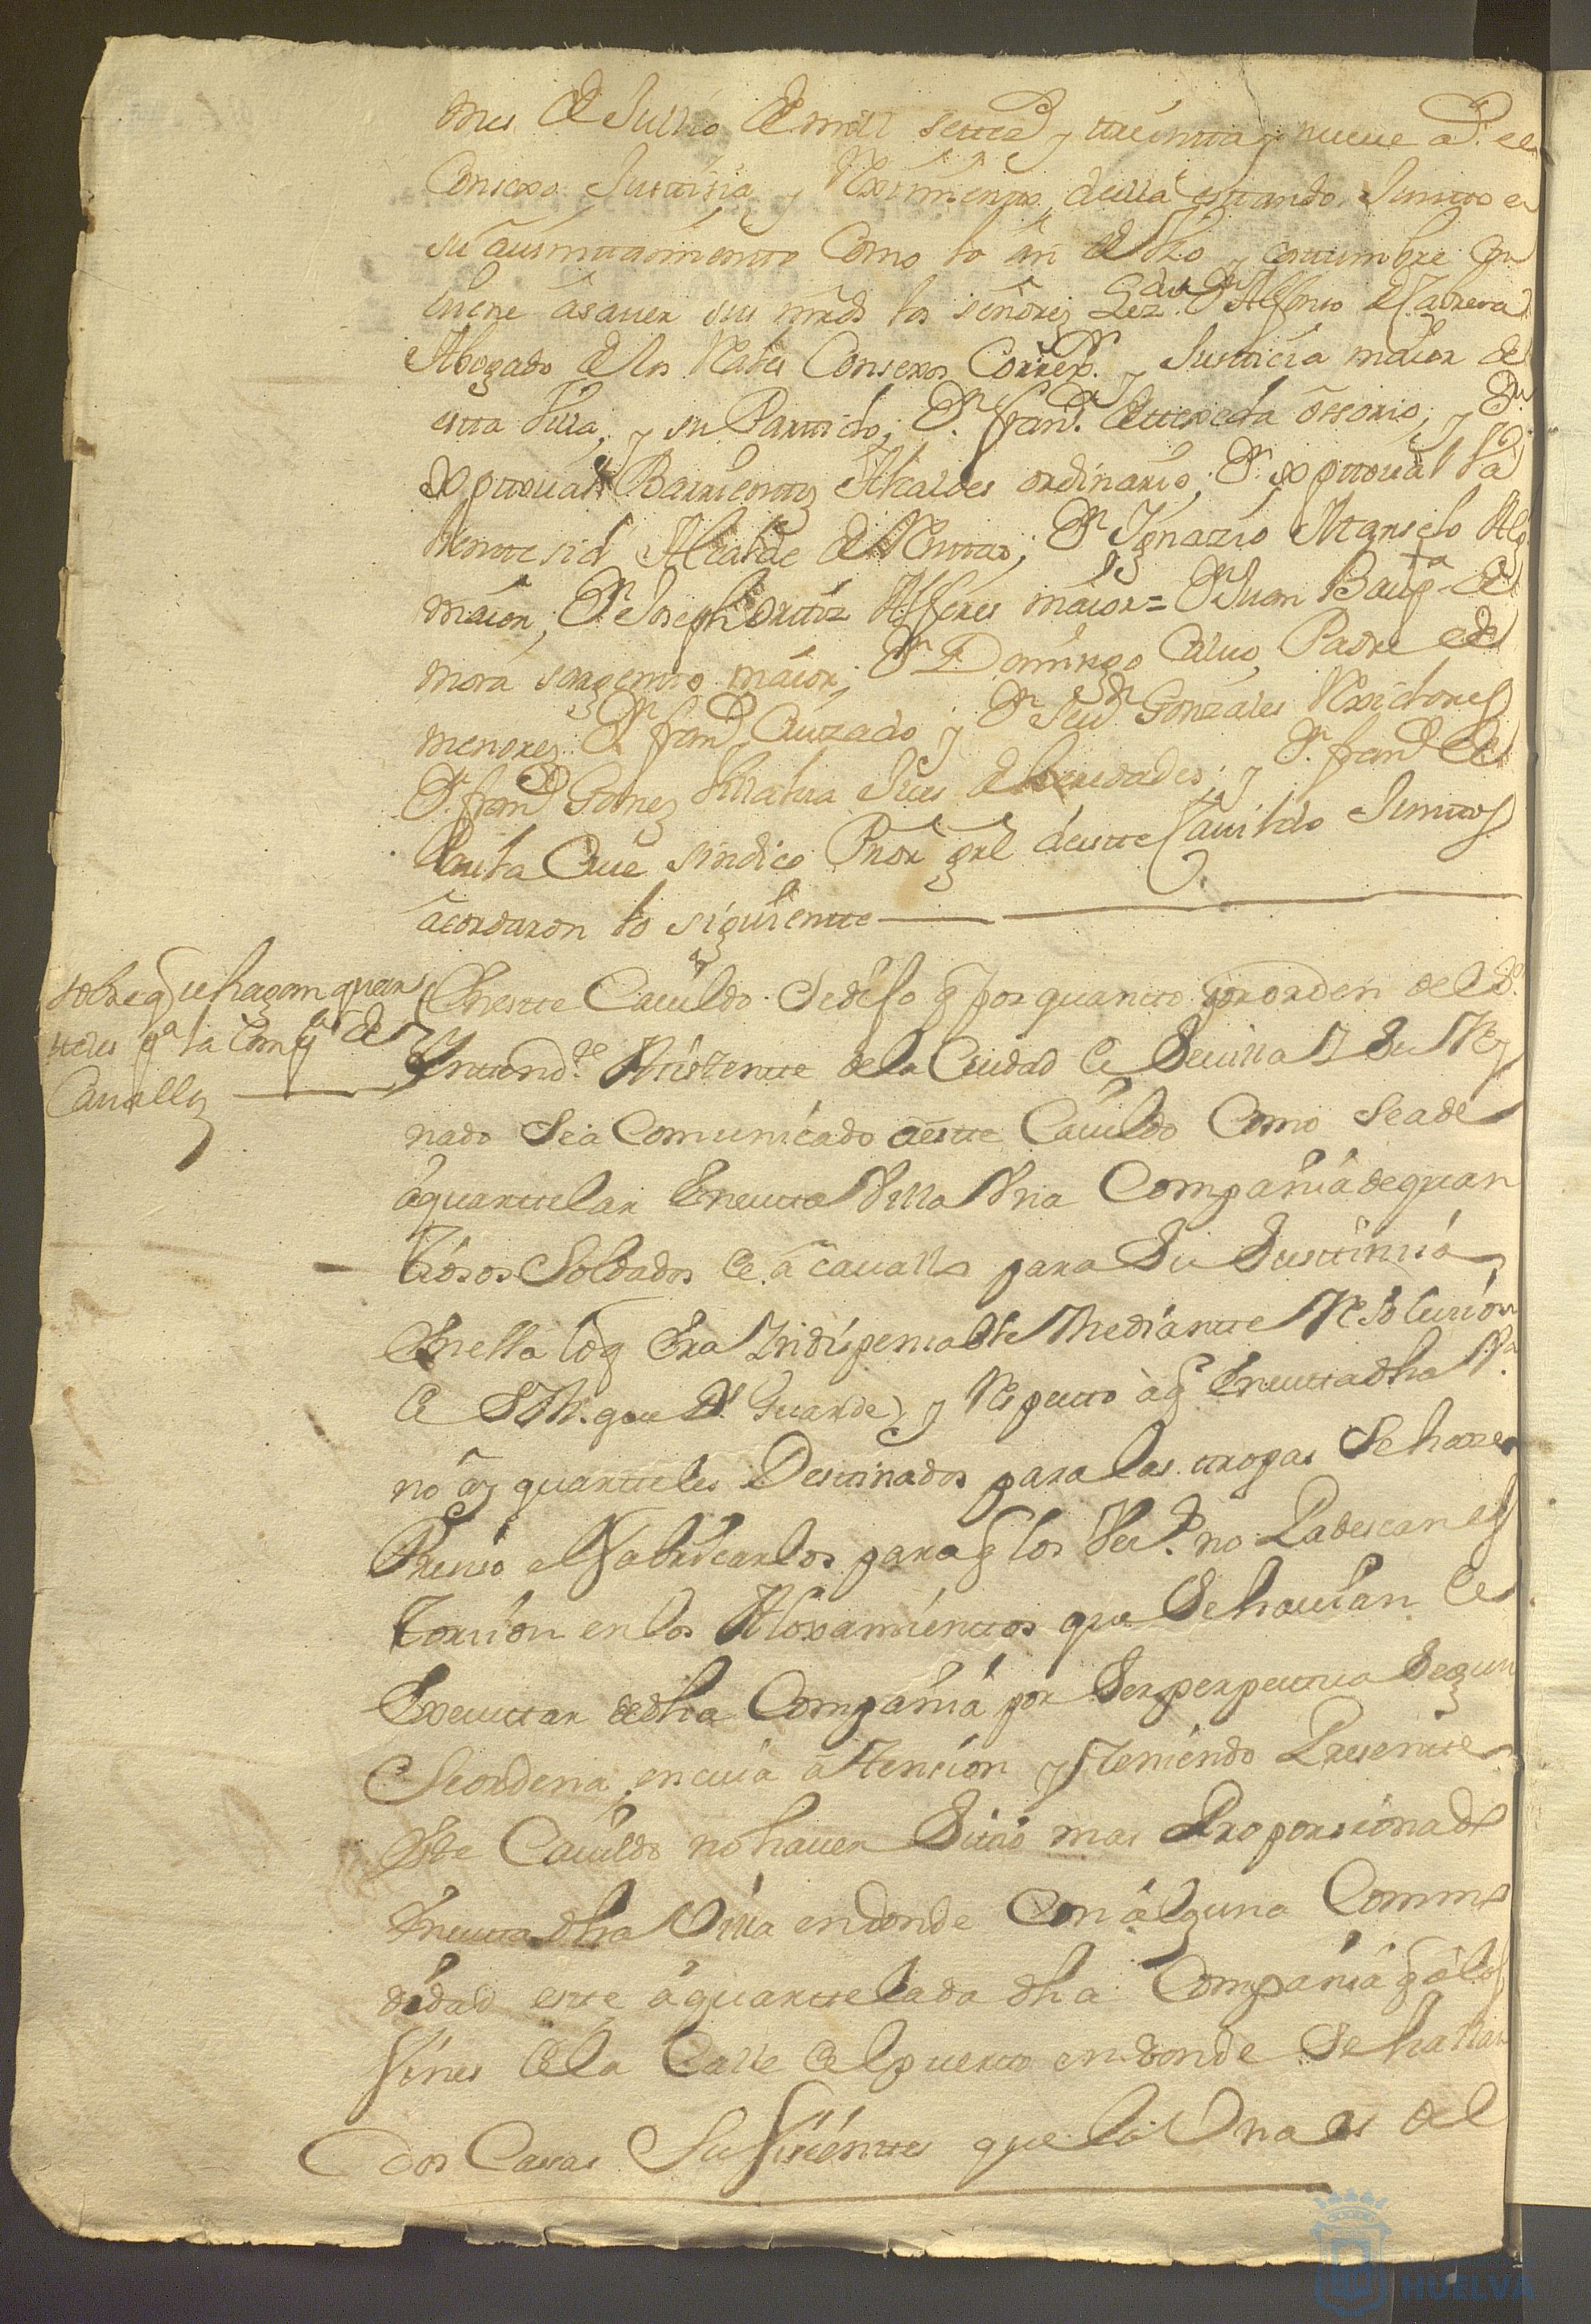 mes de Jullio de mill settez.s y treintta y nueve a.s el
Consexo Justticia y Reximiento della esttando Juntto en
su aiunttamiento Como lo an de Vso y costtumbre que
tiene a sauer sus mrds los señores Lizdo Dn Alfonso de Cabrera
Abogado de los Reales Consexos Correxr. y Justticia maior de
estta Villa, y su Parttido; Dn. Franco. de ossorio, y Dn
Xpttoual Barrienttos Alcaldes ordinarios; Dn. Xpttoual
Alcalde de Dn Ygnazio Manselo Alg.
maior; Dn Joseph Orttiz Alferes maior = Dn Juan Baupta de
mora sargentto maior; Dn Domingo Caluo, Padre de
menores Dn Franco. Quizado y Dn Seun Gonzales Rexidores
Dn. Franco Gomez Villalua Jues de heredades; y Dn. Franco de
la Cruz sindico Pror grl deestte Cauildo Junttos
acordaron lo siguientte
sobre q se hagan quar
tteles pa la Compa de
Cavallos
En estte Cauildo se dijo q por quantto por orden del Sr.
Yntendte. Asistentte de la Ciudad de Seuilla y Su Rey
nado Se a Comunicado a estte Cauildo Como se a de
aquarttelar En estta Villa Vna Compañia de quan
tiosos Soldados de a cauallo para Su Susttincia
En ella loq Era Yndispensable Mediantte Resolucion
de S M. que Ds. Guarde, y Respectto aq En estta dha Va
no ay quartteles Desttinados para las ttropas Se hace
Presiso el fabricarlos para q los Vezos. no Padescan es
torcion en los Aloxamienttos que Se hauian de
Executtar de dha Compañia por Ser perpettua Segun
Se ordena, en cuia attencion y tteniendo Presentte
Este Cauildo no hauer Sittio mas Proporcionado
En estta dha Villa en donde Con alguna Commo
didad estte aquarttelada dha Compañia q a los
fines de la Calle del puertto en donde Se hallan
dos Casas Sufisienttes que la Vna es del
HUELVA